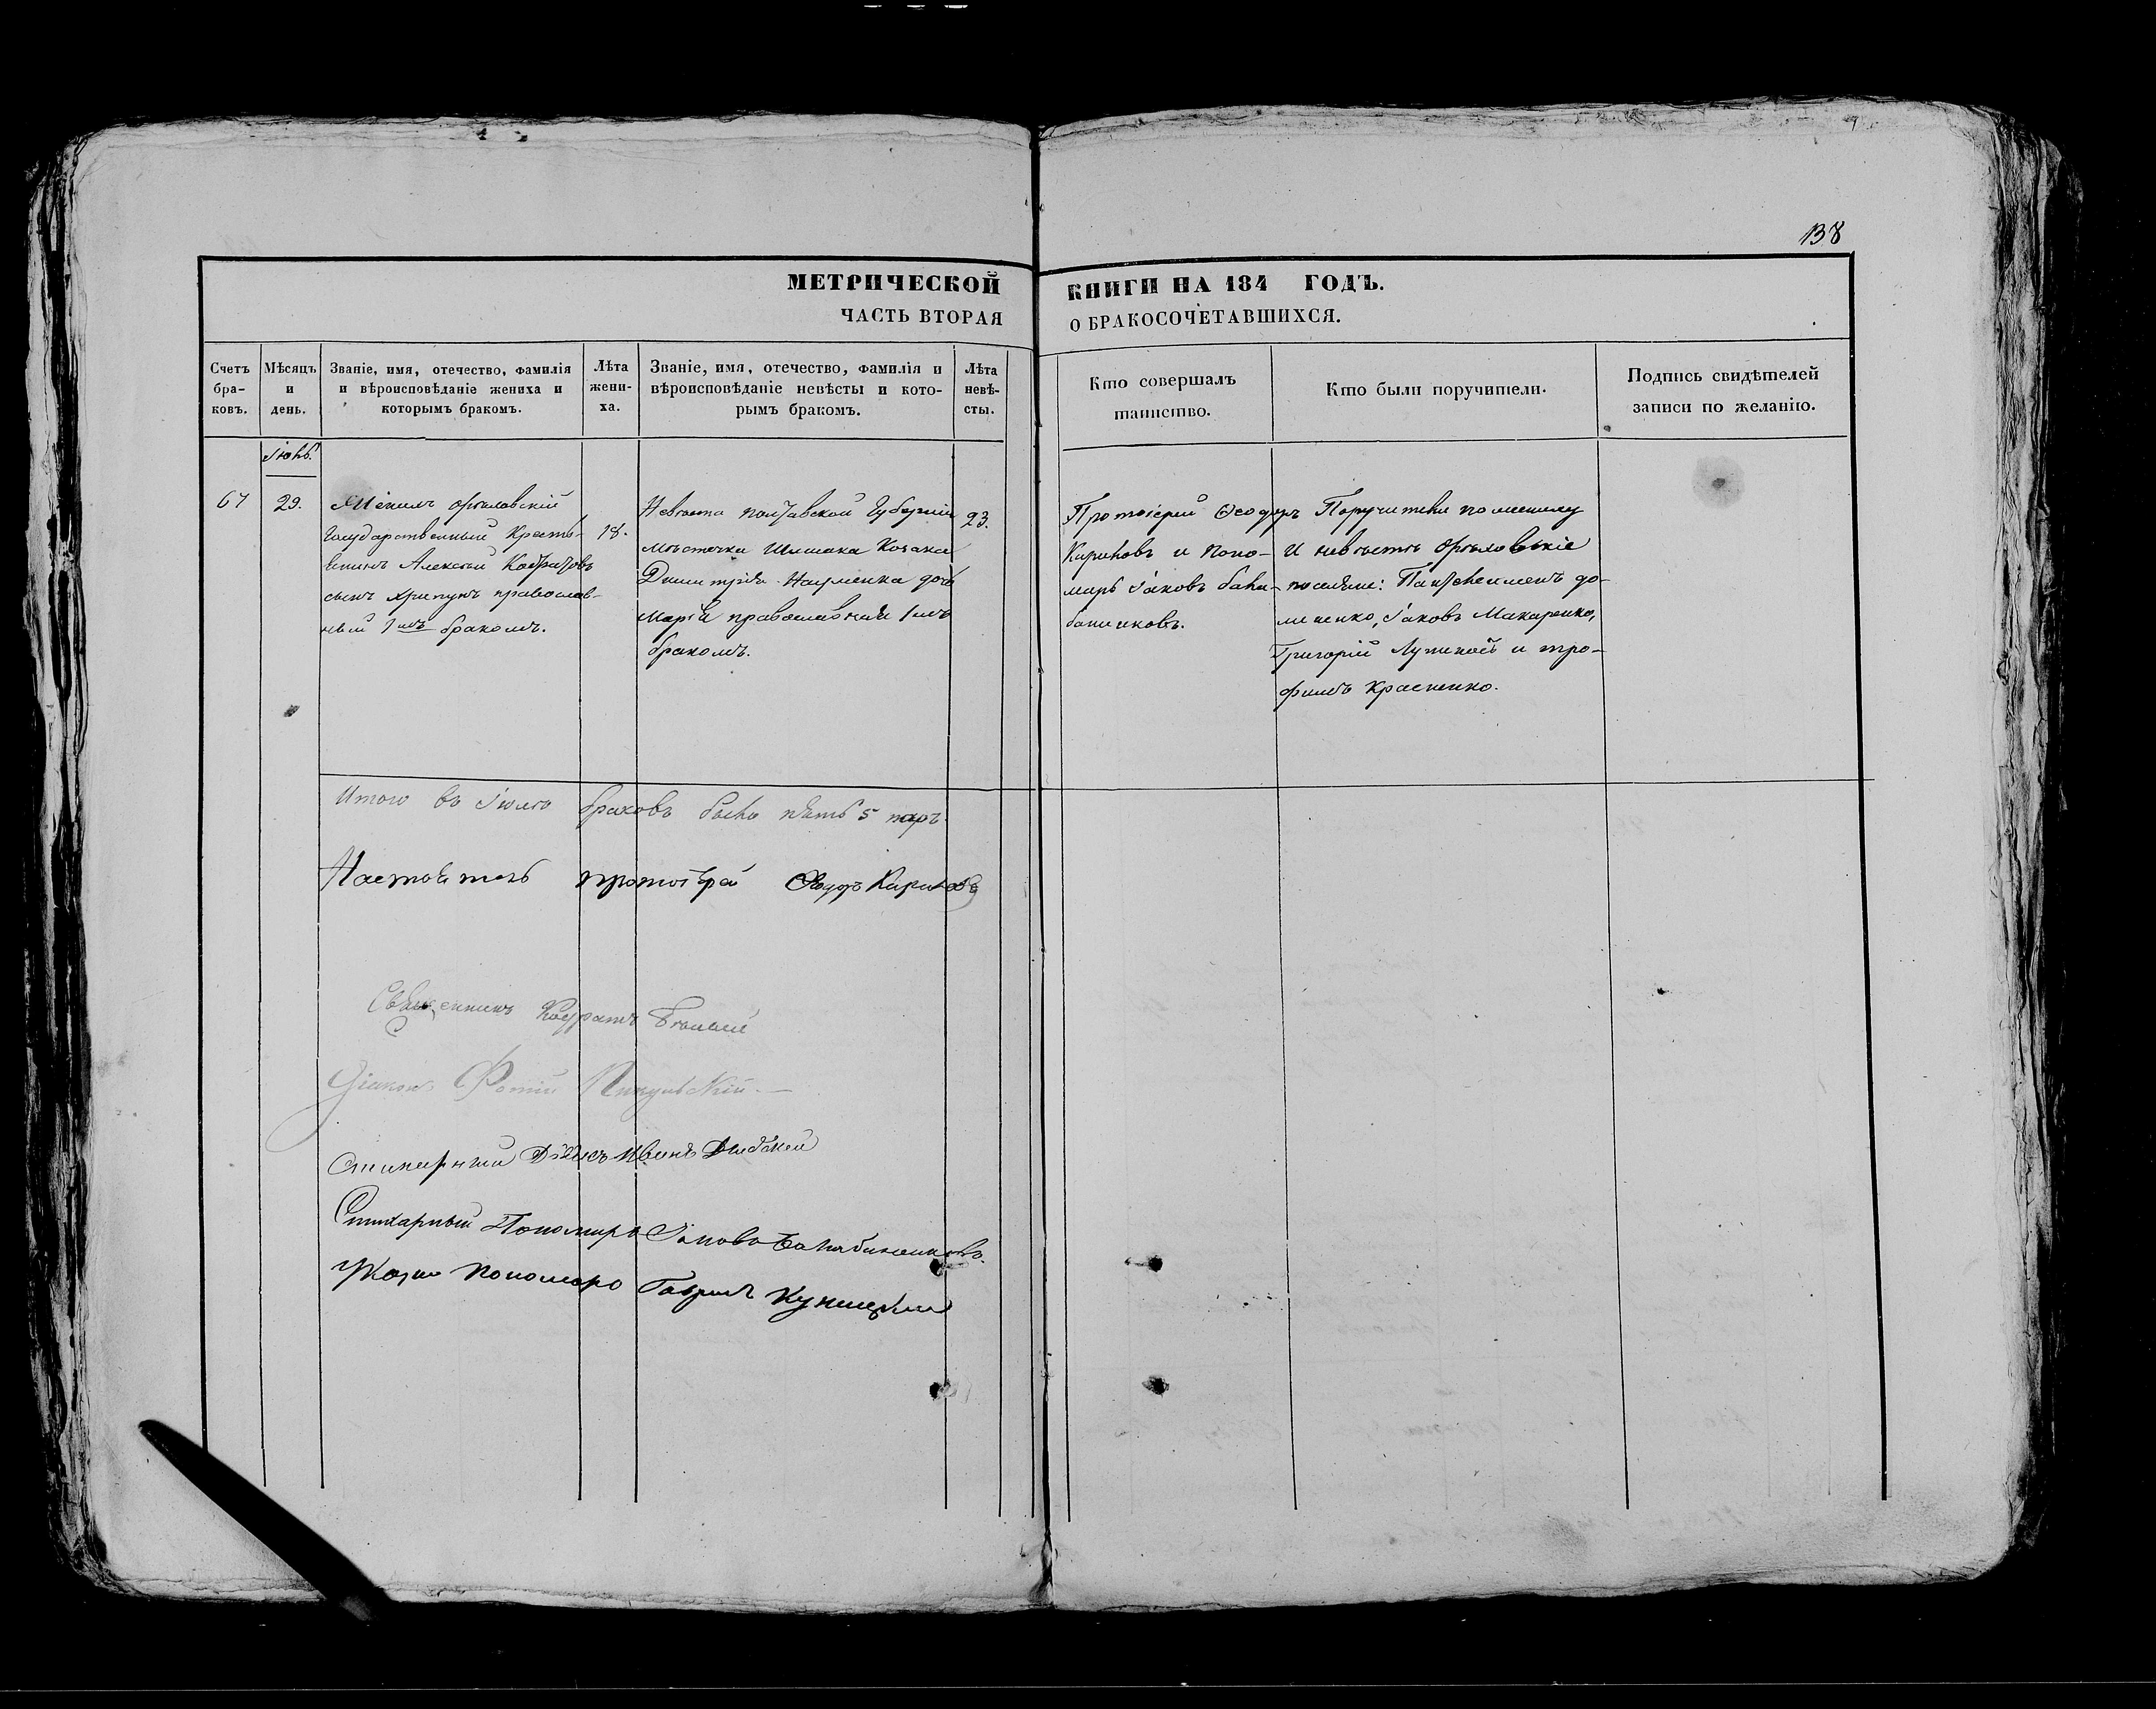 138
МЕТРИЧЕСКОЙ КНИГИ НА 184 ГОДЪ.
ЧАСТЬ ВТОРАЯ О БРАКОСОЧЕТАВШИХСЯ.
Счетъ
бра-
ковъ.
Мѣсяцъ
и
день.
Званіе, имя, отечество, фамилія
и вѣроисповѣданіе жениха и
которымъ бракомъ.
Лѣта
жени-
ха.
Званіе, имя, отечество, фамилія и
вѣроисповѣданіе невѣсты и кото-
рымъ бракомъ.
Лѣта
невѣ-
сты.
Кто совершалъ
таинство.
Кто были поручители.
Подпись свидѣтелей
записи по желанію.
67
29.
Государственный Кресть-
янинъ Алексѣй
сынъ Хрипунъ православ-
ный 1мъ бракомъ.
18.
Невѣста Полтавской Губерніи
мѣстечка Шишака Козака
Димитрія Науменка дочь
Марія православная 1мъ
бракомъ.
23.
Протоіерей Ѳеодоръ
Кириловъ и Поно-
марь Іаковъ Бала-
банщиковъ.
Поручители по жениху
и невѣстѣ
поселяне:
Іаковъ Макаренко,
Григорій и Тро-
фимъ Красненко.
Итого въ браковъ было пять 5 паръ.
Настоятель протоіерей Ѳеодоръ Кириловъ
Священникъ Кодратъ
Діаконъ Фотій
Стихарный Дьячекъ Иванъ
Стихарный Пономарь Іаковъ Балабанщиковъ
Пономарь Гавріилъ